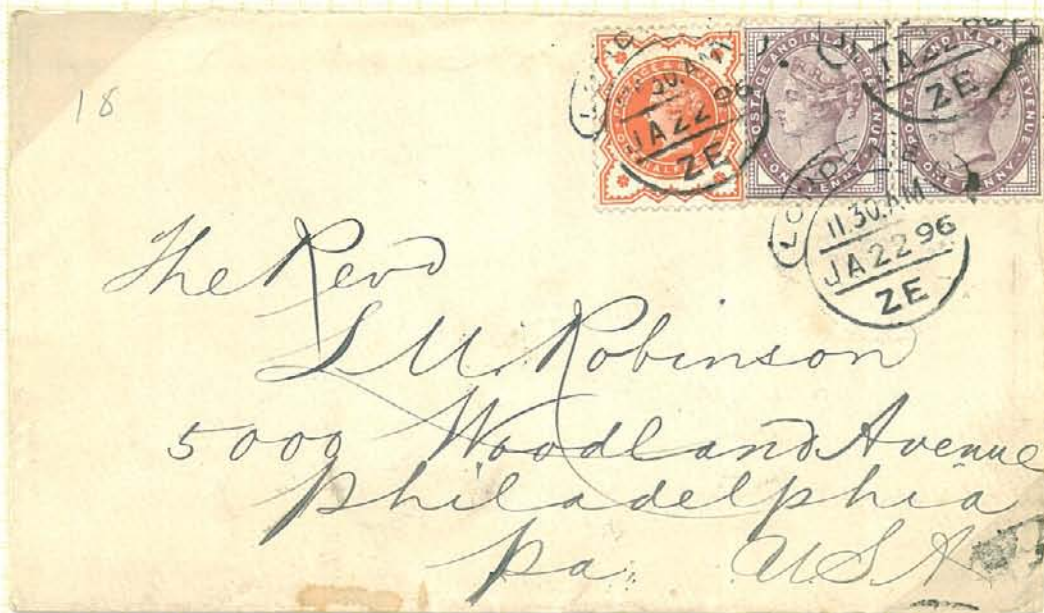 18
POSTAGE & REVENUE
POSTAGE AND INLAND REVENUE
ONE PENNY
POSTAGE AND INLAND REVENUE
ONE PENNY
30.AM
JA 22 96
ZE
JA 22 96
ZE
LONDON
11.30.AM
JA 22 96
ZE
The Revd
L M Robinson
5000 Woodland Avenue
Philadelphia
Pa. USA